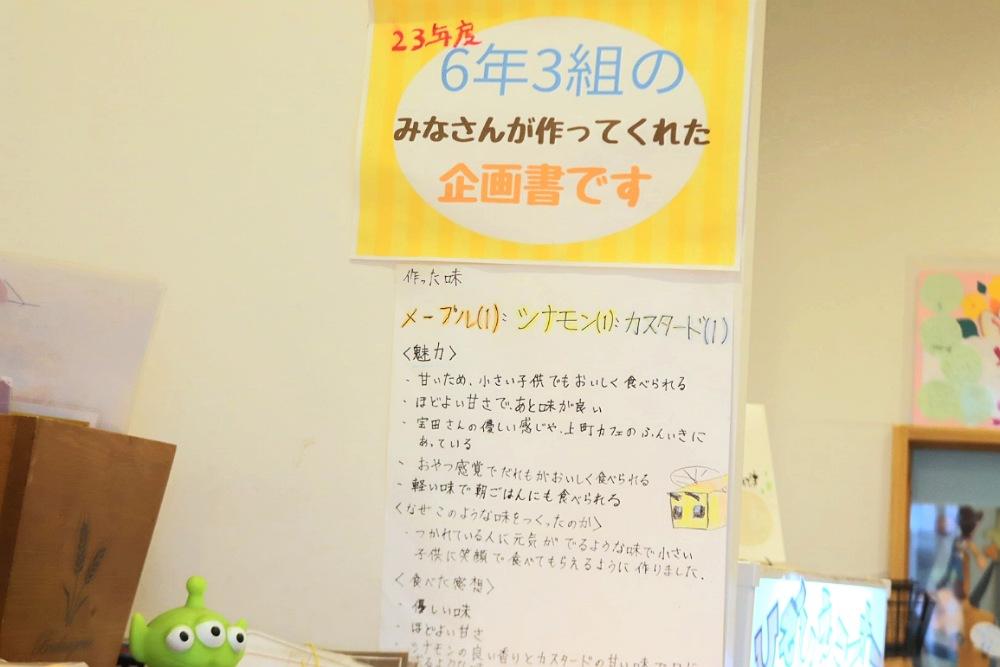 23年度
6年3組の
みなさんが作ってくれた
企画書です
作った味
メープル(1):シナモン(1):カスタード(1)
〈魅力〉
・甘いため、小さい子供でもおいしく食べられる
・ほどよい甘さで、あと味が良い
・宝田さんの優しい感じや、上町カフェのふんいきに
あっている
・おやつ感覚でだれもがおいしく食べられる
・軽い味で朝ごはんにも食べられる
〈なぜこのような味をつくったのか〉
・つかれている人に元気がでるような味で小さい
子供に笑顔で食べてもらえるように作りました.
〈食べた感想〉
・優しい味
・ほどよい甘さ
・シナモンの良い香りとカスタードの甘い味